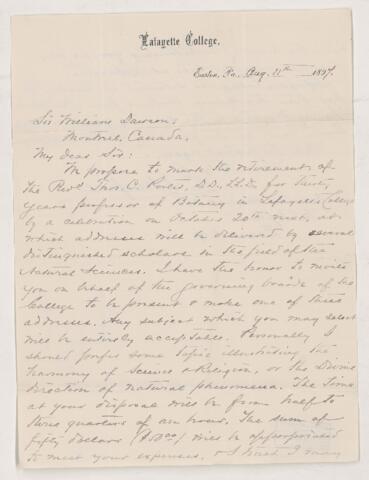 Lafayette College,
Easton, Pa., Aug. 11th 1897.
Sir William Dawson,
Montreal, Canada,
My Dear Sir:
We propose to mark the retirement of
the Revd. Thos. C. Porter, D.D., LL.D., for thirty
years professor of Botany in Lafayette College
by a celebration on October 20th next, at
which addresses will be delivered by several
distinguished scholars in the field of the
Natural Sciences. I have the honor to invite
you on behalf of the governing boards of the
College to be present & make one of these
addresses. Any subject which you may select
will be entirely acceptable. Personally I
should prefer some topic illustrating the
harmony of Science & Religion, or the Divine
direction of natural phenomena. The time
at your disposal will be from half to
three quarters of an hour. The sum of
fifty dollars ($50.00) will be appropriated
to meet your expenses, & I trust I may